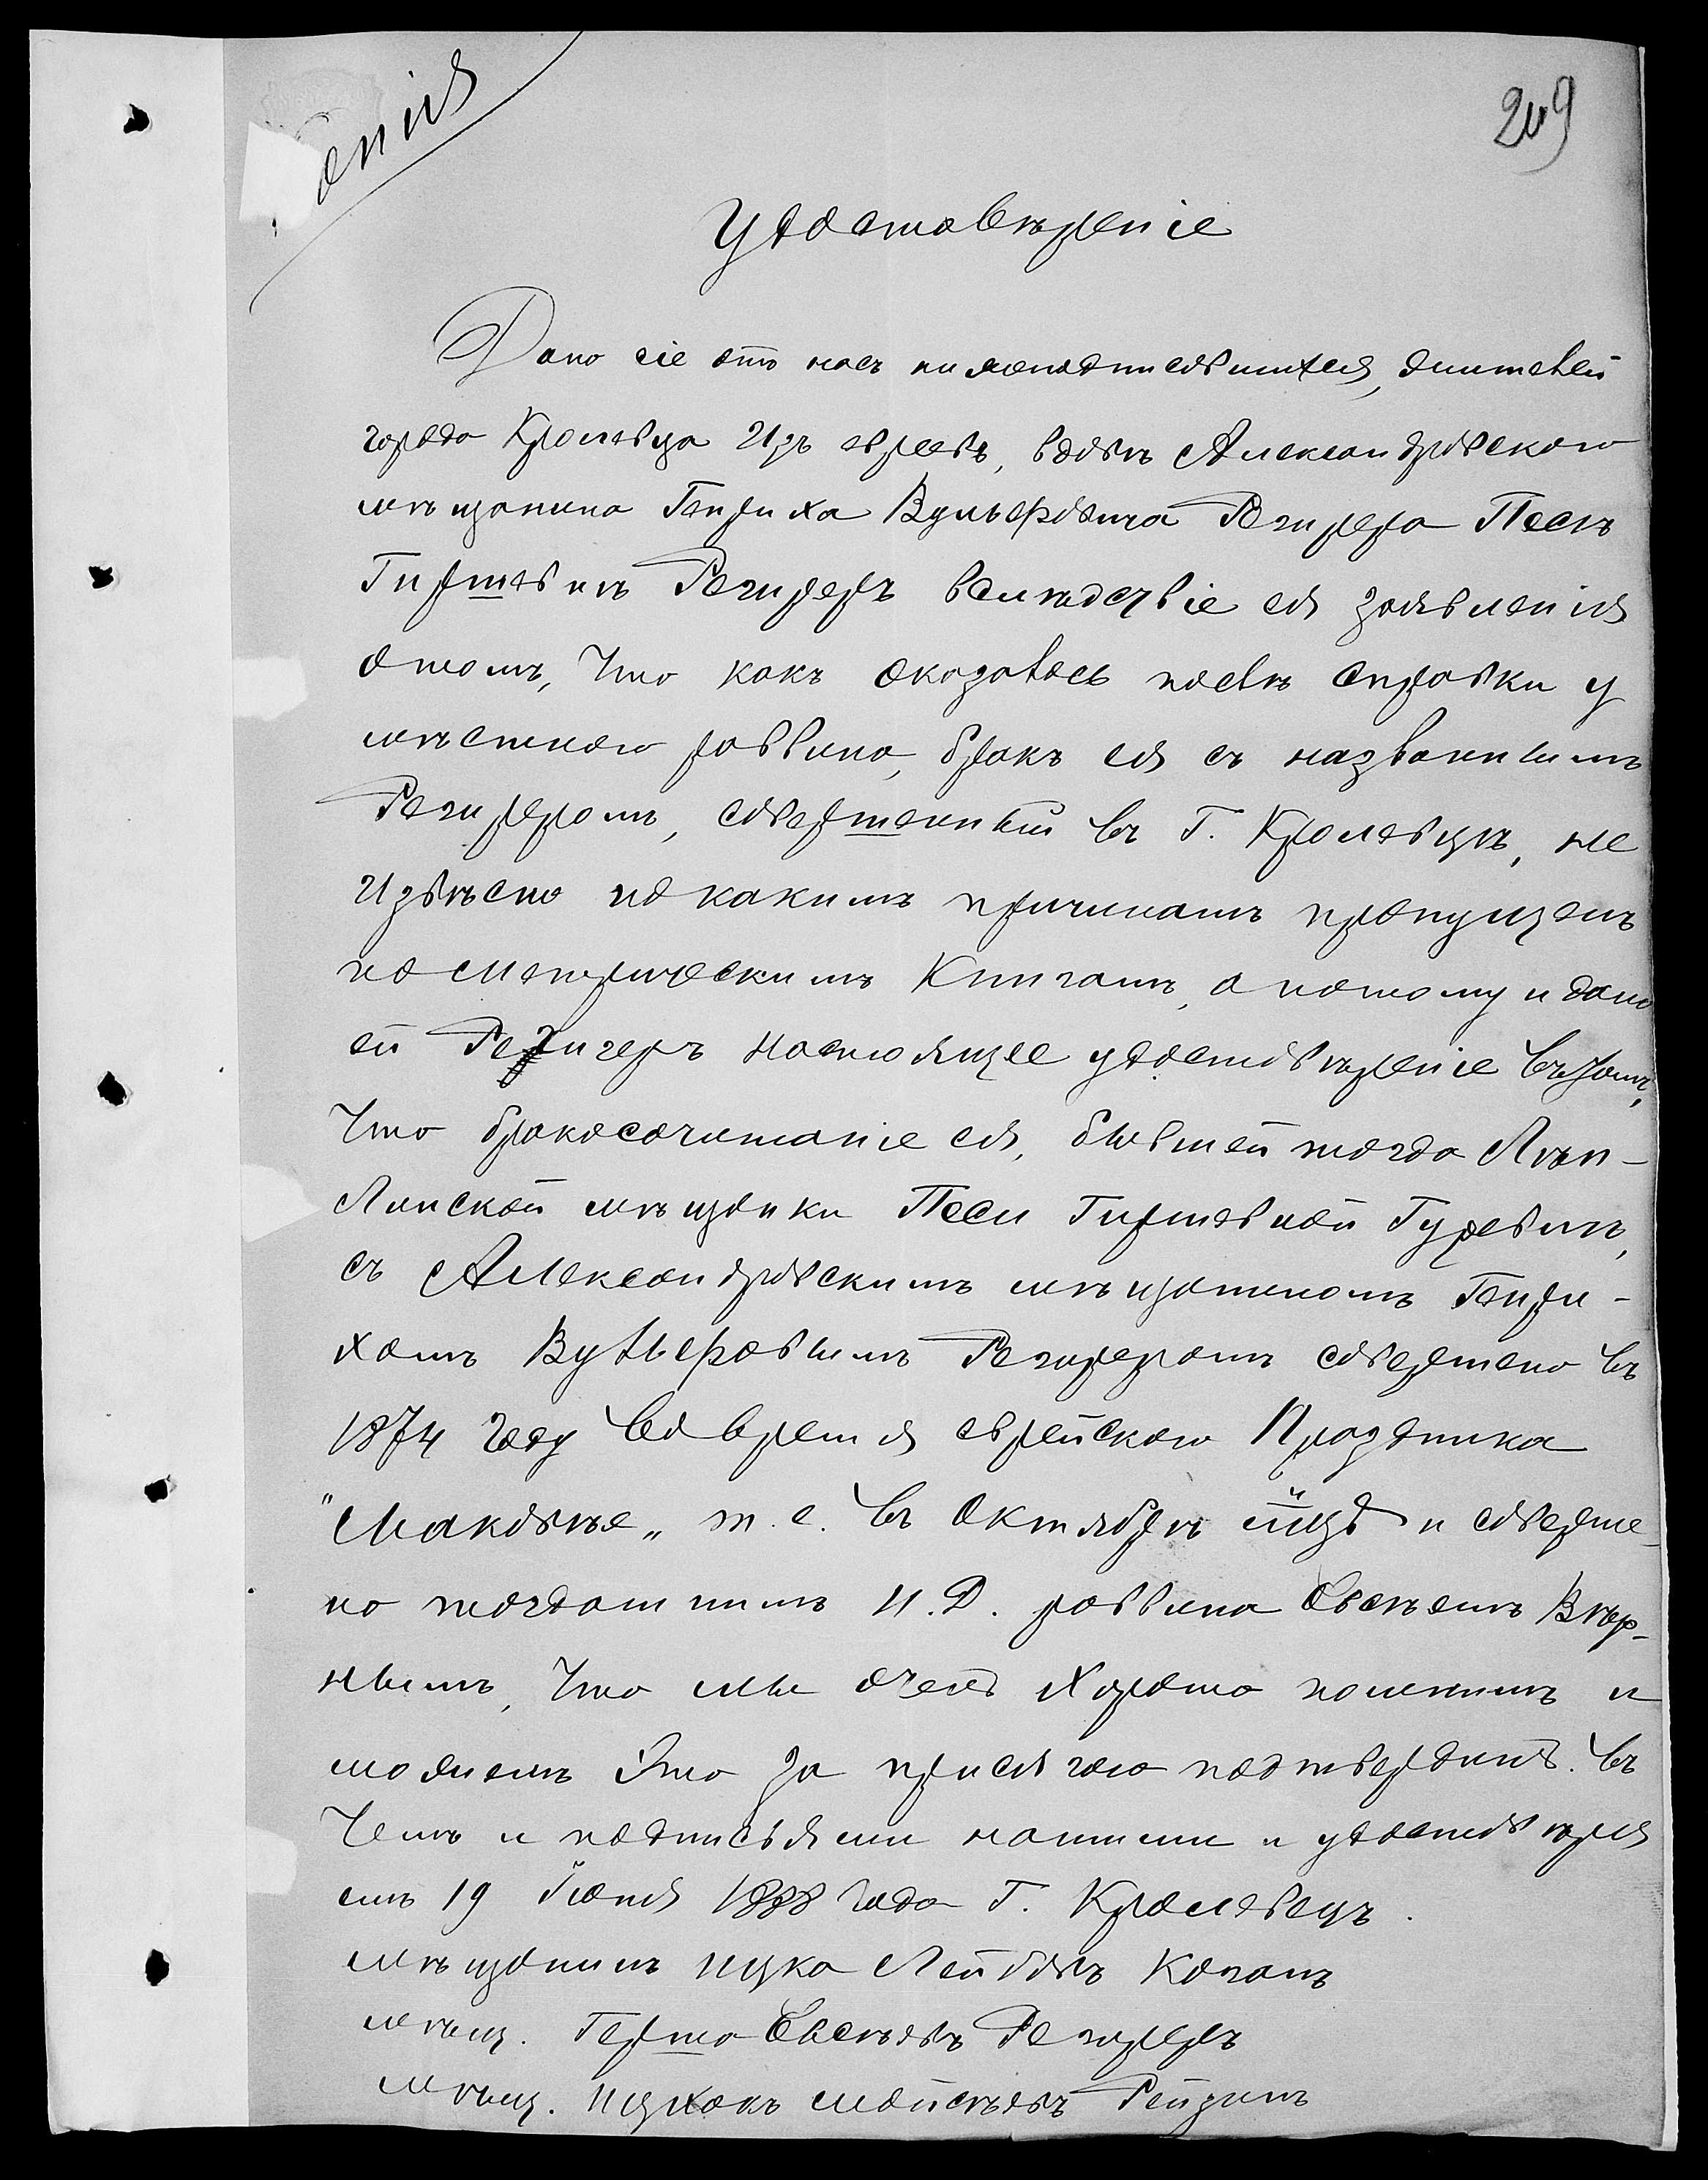 копія
209
Удостовѣреніе
Дано сіе отъ насъ нижеподписавшихся, жителей
города Кролевца Изъ евреевъ, вдовѣ Александровского
мѣщанина Генриха Вульфовича Резигера Песѣ
Гиршевнѣ Резигеръ вслѣдствіе ея заявленія
отомъ, что какъ оказалось послѣ справки у
мѣстного раввина, бракъ ея съ названнымъ
Резигеромъ, совершенный въ Г. Кролевцѣ, не
Извѣсно по какимъ причинамъ пропущенъ
по Метрическимъ Книгамъ, а потому и дано
ей Резигеръ настоящее удостовѣреніе въ томъ,
что бракосочитаніе ея, бывшей тогда Лѣп-
Линской мѣщанки Песи Гиршевной Гуревичъ,
съ Александровскимъ мѣщаниномъ Генри-
хомъ Вульфовымъ Резигеромъ совершено въ
1874 году во время еврейского Праздника
"Маковѣе„ т. е. въ Октябрѣ м-цѣ и соверше-
но тогдашнимъ И. Д. раввина Овсѣемъ Вѣр-
нымъ, что мы очень хорошо помнимъ и
можемъ это за присягою подтвердить. въ
чемъ и подписьями нашими и удостовѣря
емъ 19 Іюня 1888 года Г. Кролевецъ.
мѣщанинъ Ицка Лейбовъ Коганъ
мѣщ. Гершо Овсѣевъ Резигеръ
мѣщ. Ицхокъ Мойсѣевъ Рейзинъ